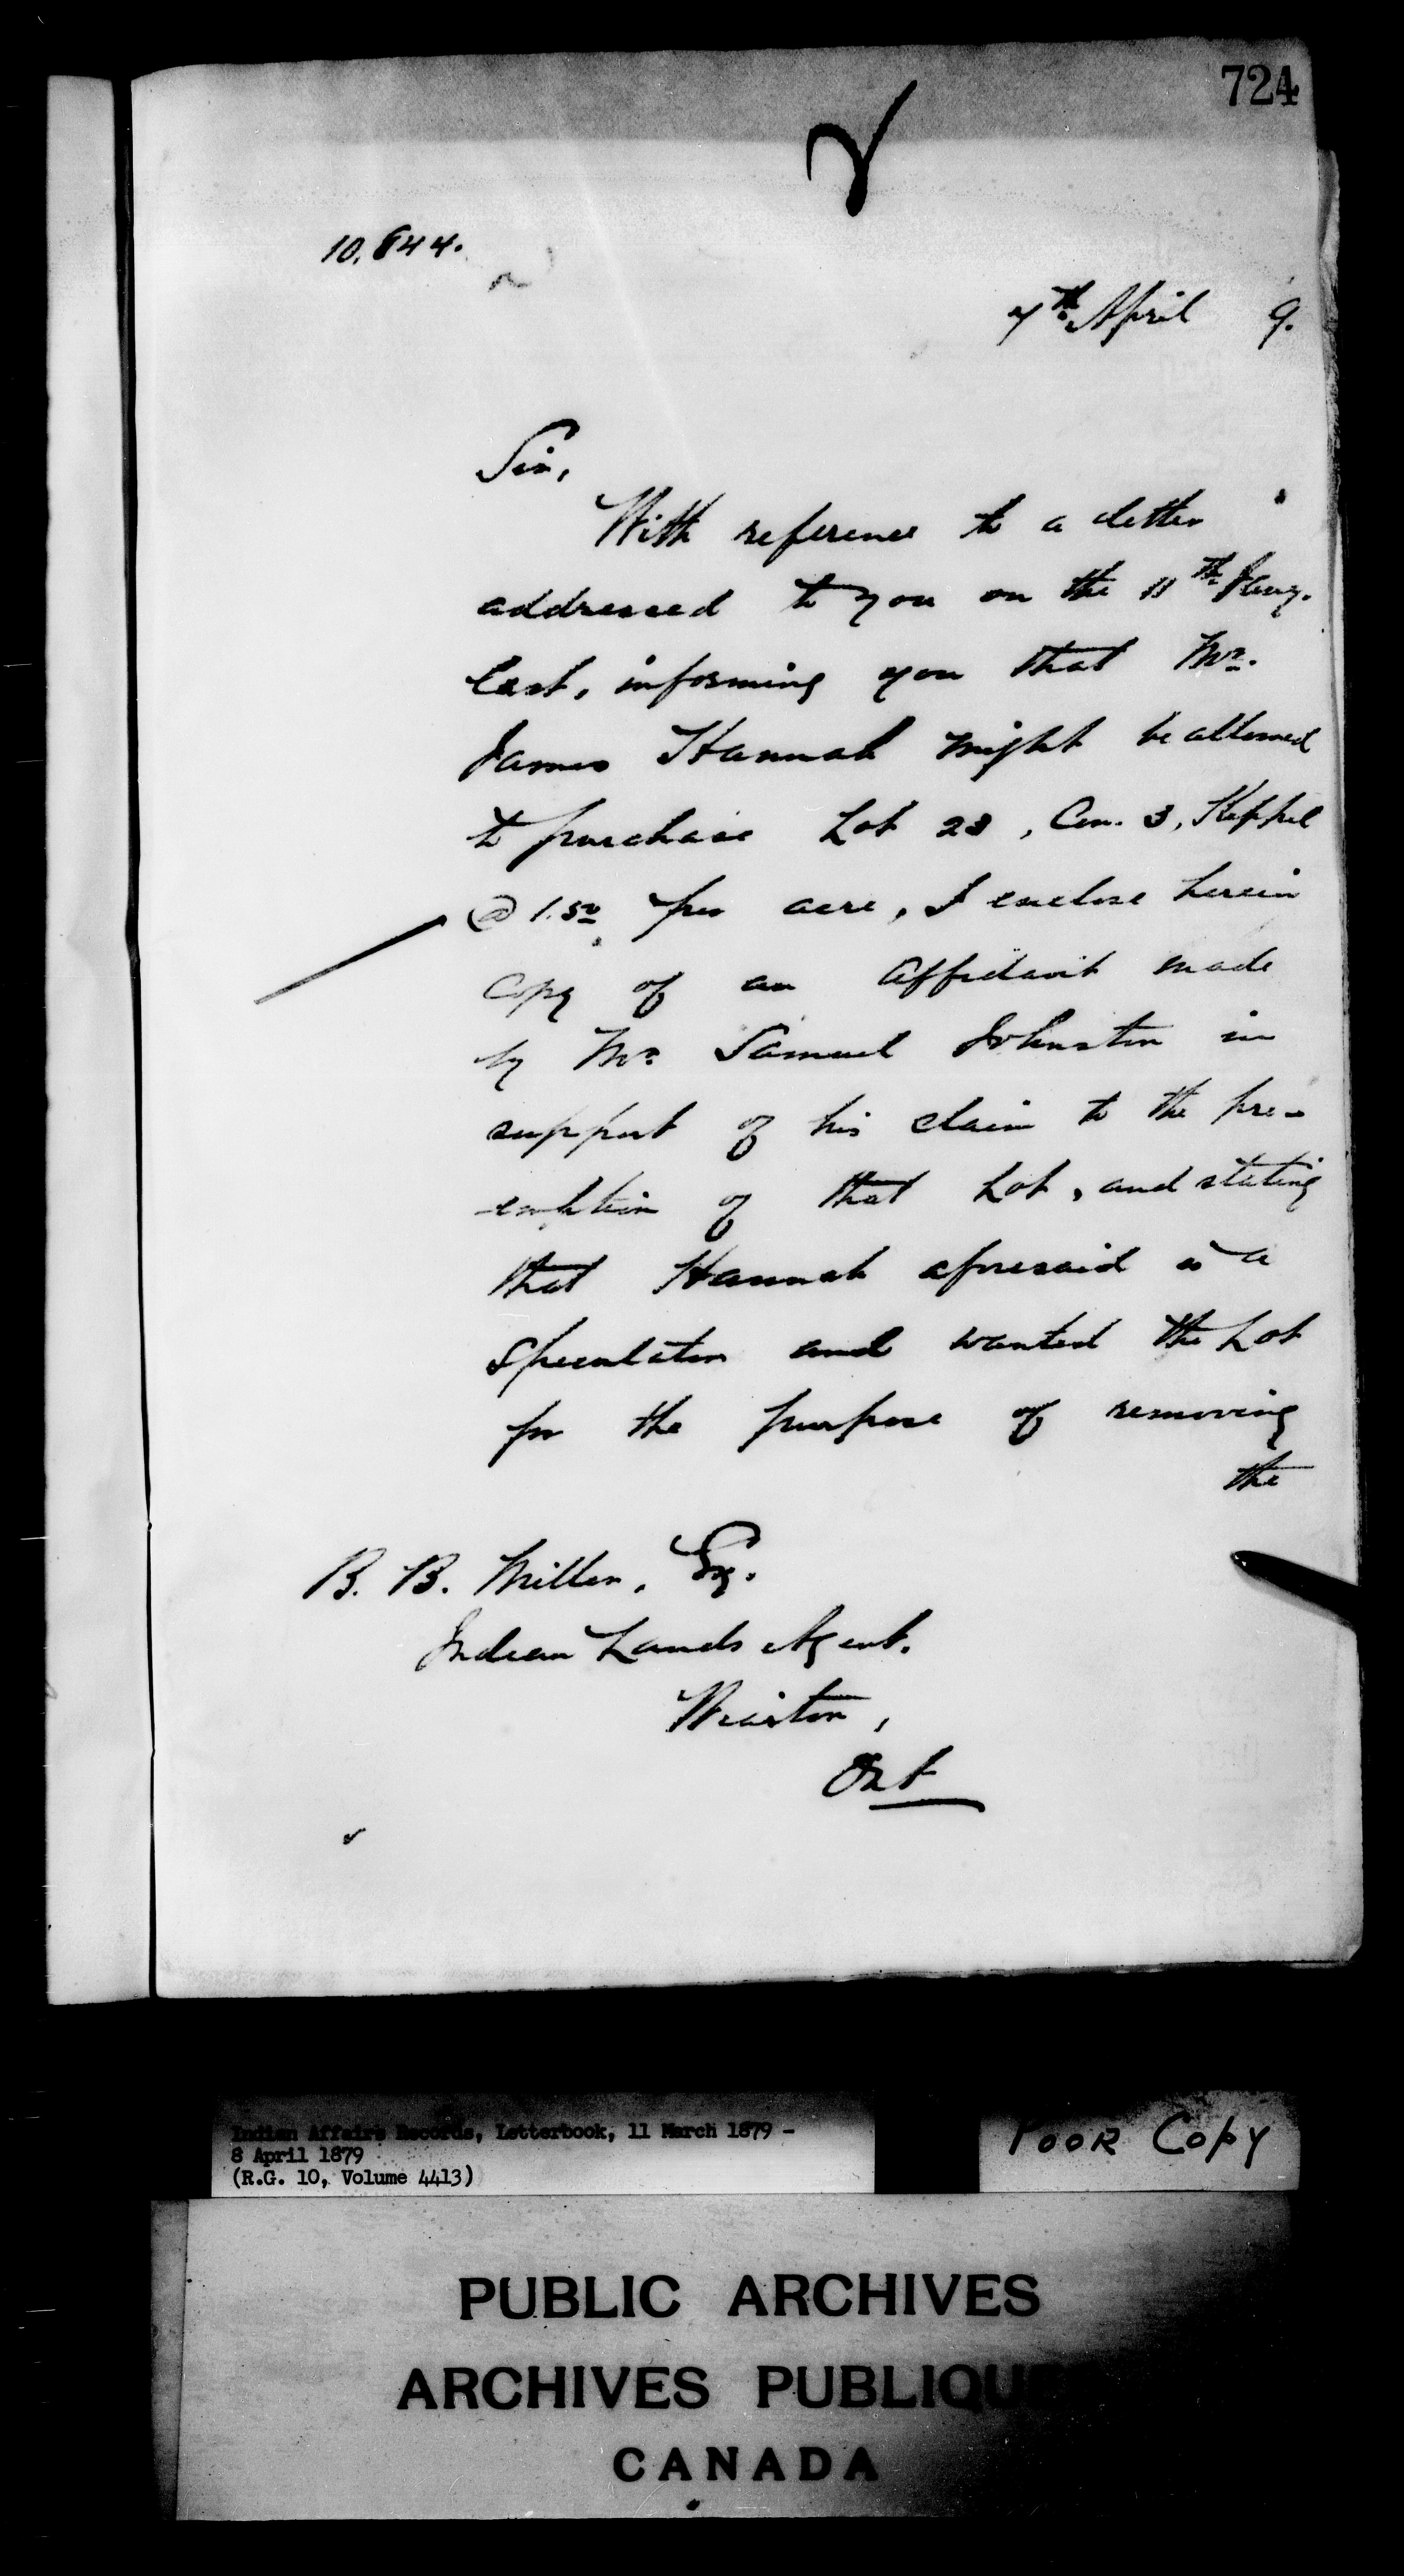 724
10.844.
7th April 9.
Sir,
With reference to a letter
addressed to you on the 11th Jany.
last, informing you that Mr.
James Hannah might be allowed
to purchase Lot 23, Con. 3, Keppel
@ 1.50 per acre, I enclose herein
copy of an affidavit made
by Mr. Samuel Johnston in
support of his claim to the pre-
-emption of that Lot, and stating
that Hannah aforesaid is a
speculator and wanted the Lot
for the purpose of removing
the
B. B. Miller, Esq.
Indian Lands Agent.
Wiarton,
Ont
Indian Affairs Records, Letterbook, 11 March 1879 -
8 April 1879
(R.G. 10, Volume 4413)
POOR COPY
PUBLIC ARCHIVES
ARCHIVES PUBLIQUES
CANADA